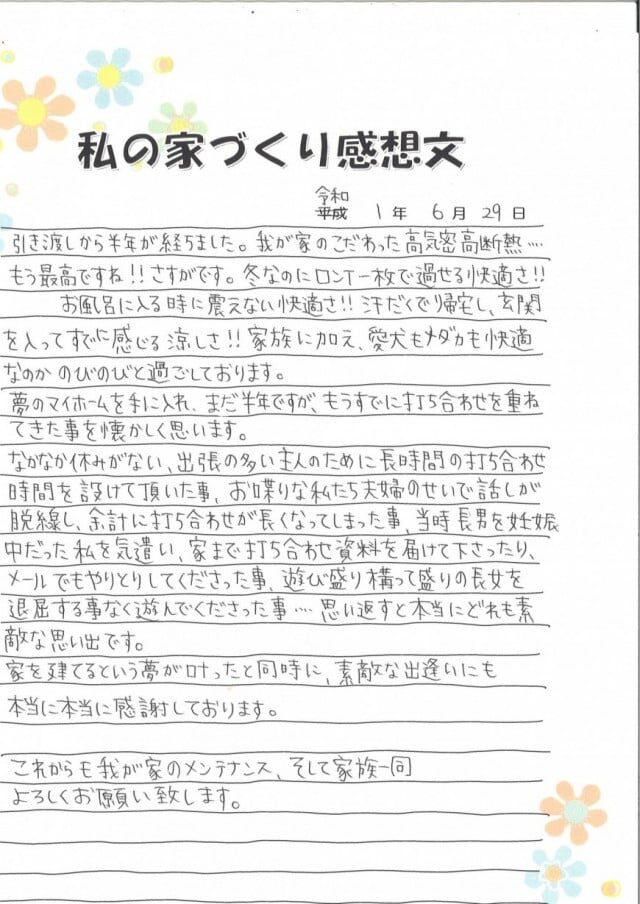 私の家づくり感想文
令和
平成 1年 6月 29日
引き渡しから半年が経ちました。我が家のこだわった高気密高断熱....
もう最高ですね!!さすがです。冬なのにロンT一枚で過せる快適さ!!
お風呂に入る時に震えない快適さ!!汗だくで帰宅し、玄関
を入ってすでに感じる涼しさ!!家族に加え、愛犬もメダカも快適
なのかのびのびと過ごしております。
夢のマイホームを手に入れ、まだ半年ですが、もうすでに打ち合わせを重ね
てきた事を懐かしく思います。
なかなか休みがない、出張の多い主人のために長時間の打ち合わせ
時間を設けて頂いた事、お喋りな私たち夫婦のせいで話しが
脱線し、余計に打ち合わせが長くなってしまった事、当時長男を妊娠
中だった私を気遣い、家まで打ち合わせ資料を届けて下さったり、
メールでもやりとりしてくださった事、遊び盛り構って盛りの長女を
退屈する事なく遊んでくださった事....思い返すと本当にどれも素
敵な思い出です。
家を建てるという夢が叶ったと同時に、素敵な出逢いにも
本当に本当に感謝しております。
これからも我が家のメンテナンス、そして家族一同
よろしくお願い致します。